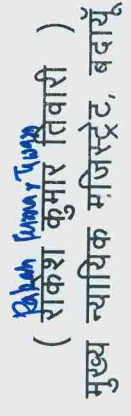 Rakesh Kumar Tiwari
( राकेश कुमार तिवारी )
मुख्य न्यायिक मजिस्ट्रेट, बदायूँ